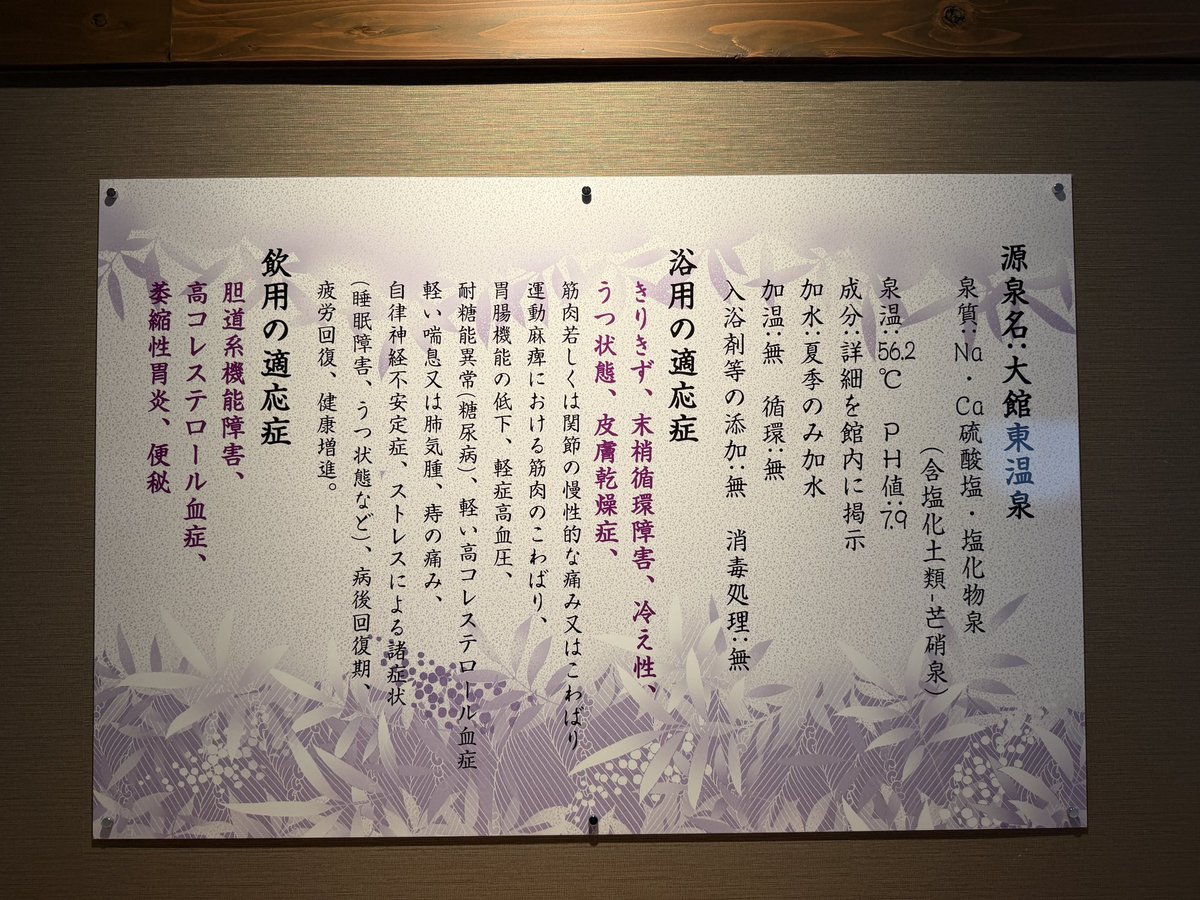 源泉名：大館東温泉
泉質：Na・Ca硫酸塩・塩化物泉
（含塩化土類-芒硝泉）
泉温：56.2℃　PH値：7.9
成分：詳細を館内に掲示
加水：夏季のみ加水
加温：無　循環：無
入浴剤等の添加：無　消毒処理：無
浴用の適応症
きりきず、末梢循環障害、冷え性、
うつ状態、皮膚乾燥症、
筋肉若しくは関節の慢性的な痛み又はこわばり
運動麻痺における筋肉のこわばり、
胃腸機能の低下、軽症高血圧、
耐糖能異常(糖尿病)、軽い高コレステロール血症
軽い喘息又は肺気腫、痔の痛み、
自律神経不安定症、ストレスによる諸症状
(睡眠障害、うつ状態など)、病後回復期、
疲労回復、健康増進。
飲用の適応症
胆道系機能障害、
高コレステロール血症、
萎縮性胃炎、便秘